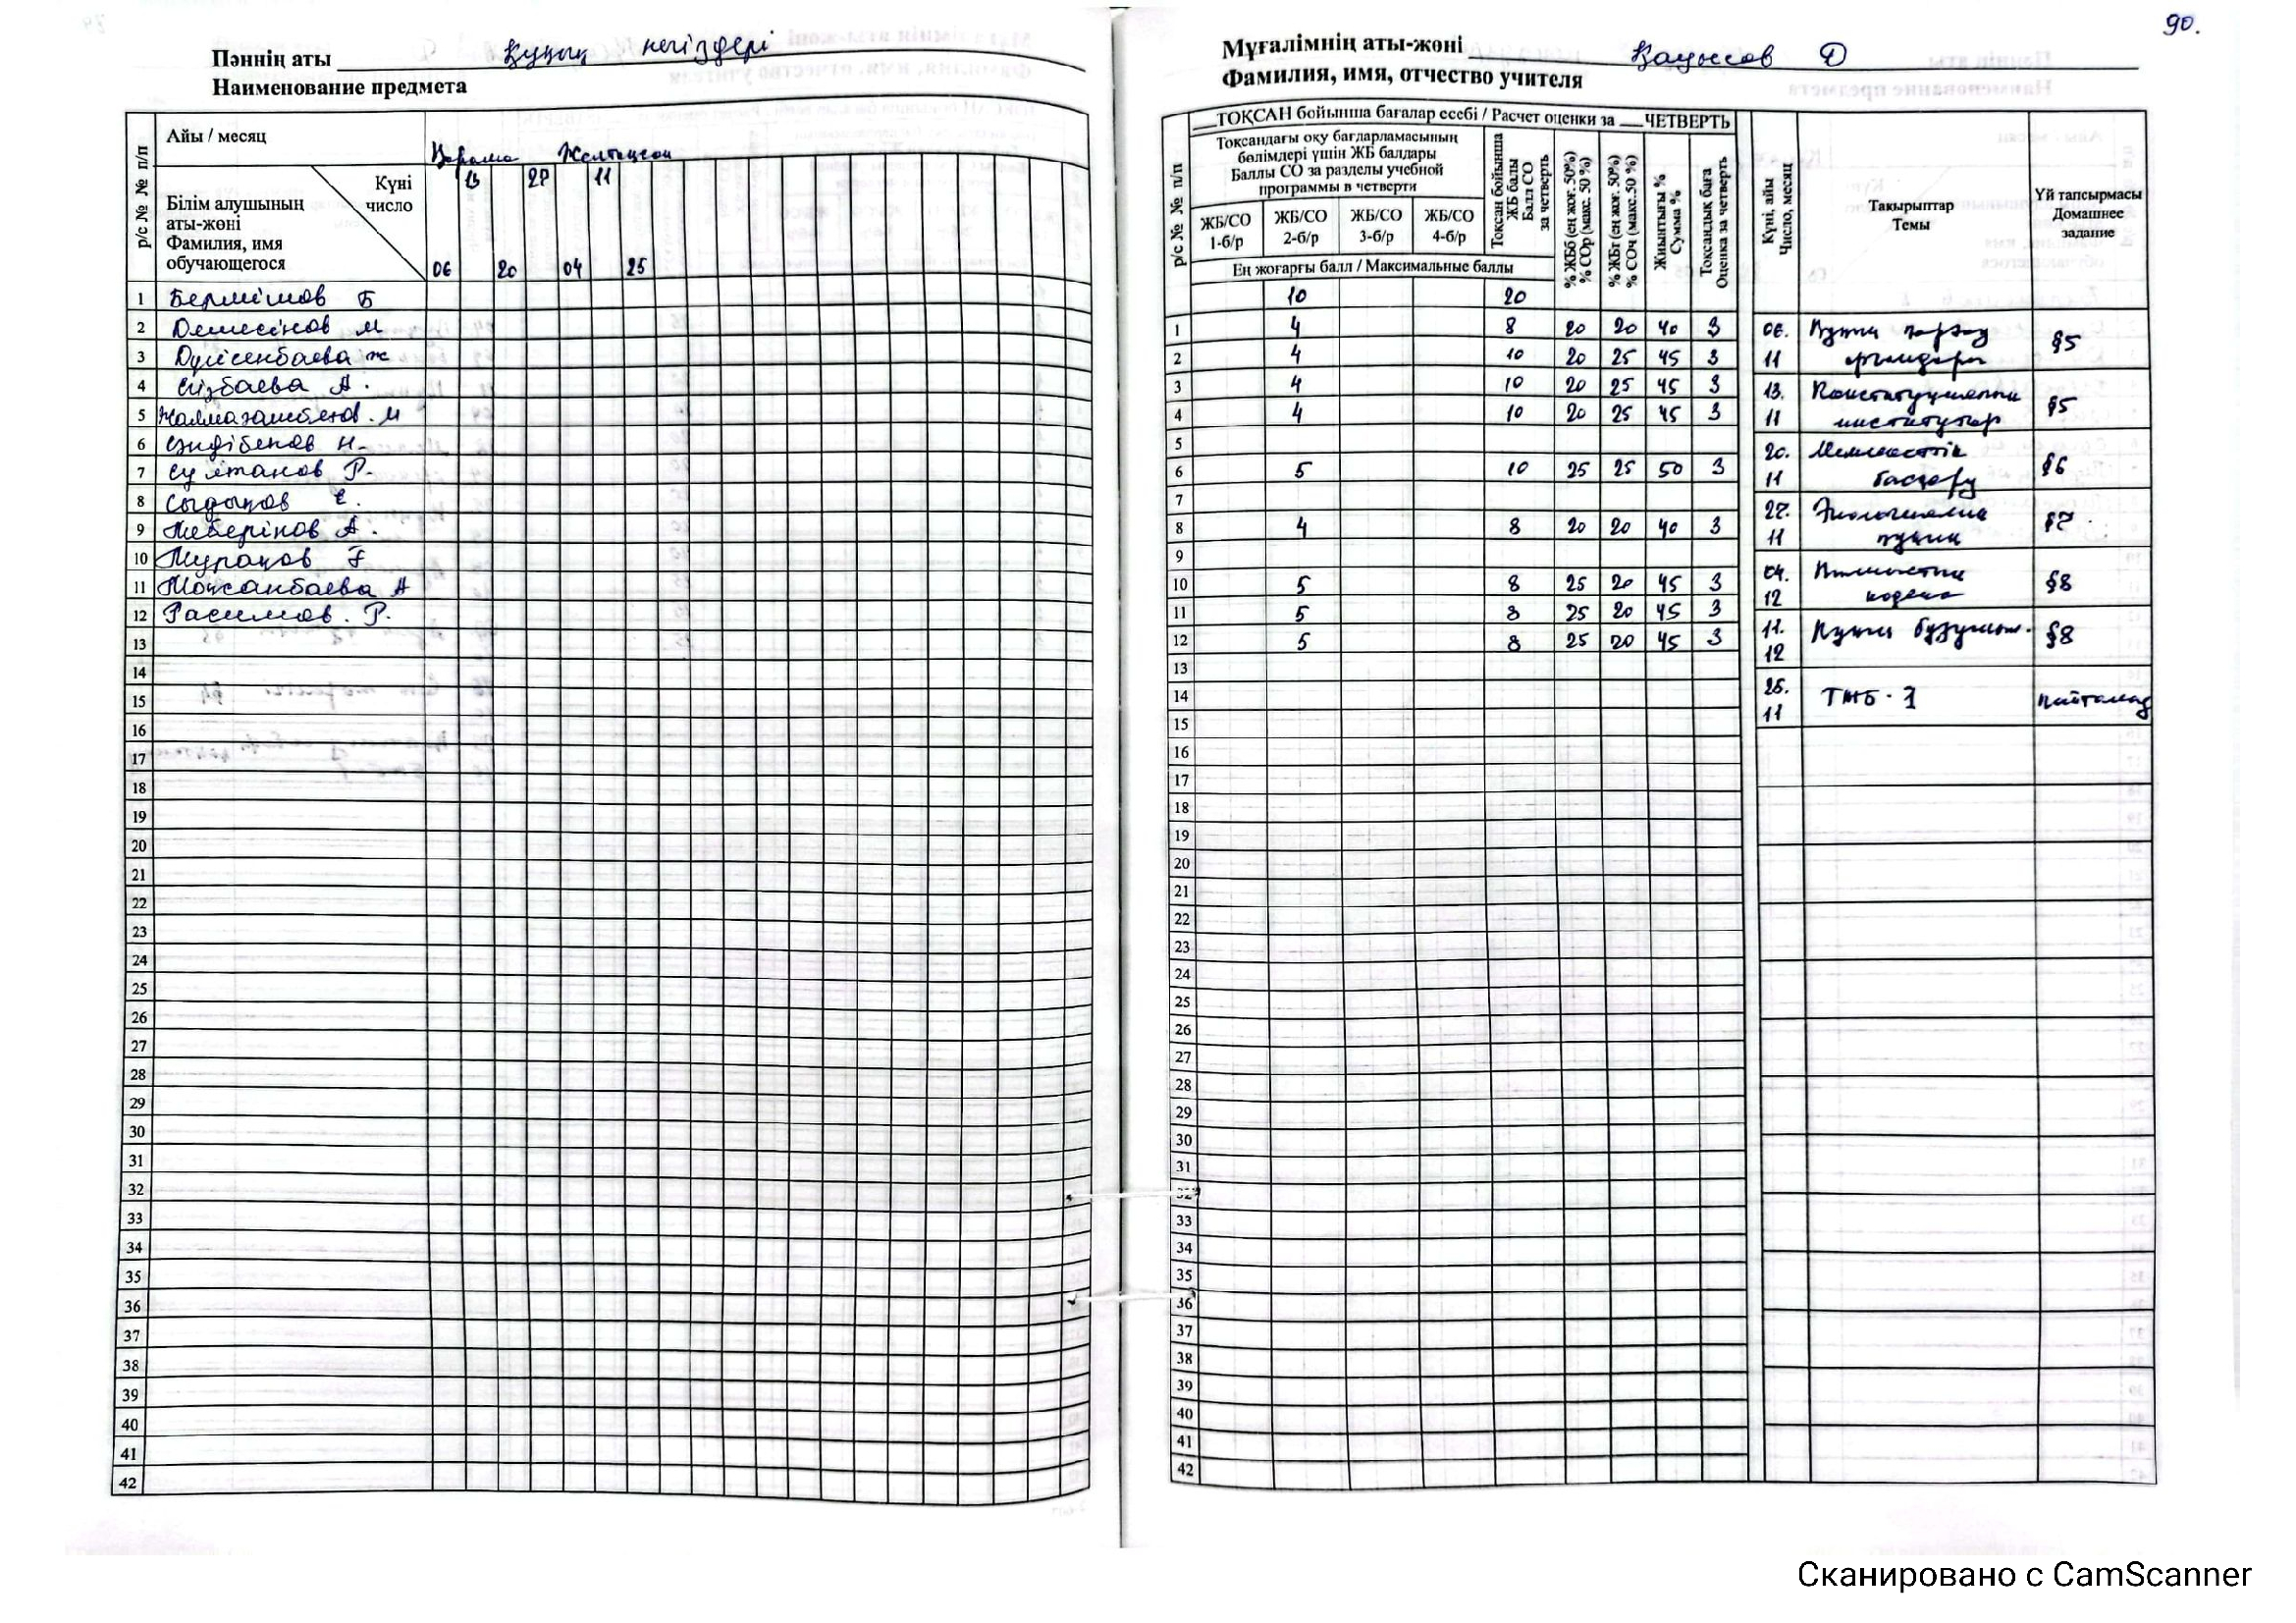 90.
Пәннің аты Құқық негіздері
Наименование предмета
р/с № № п/п
Айы / месяц
Қараша Желтоқсан
Күні
число
Білім алушының
аты-жөні
Фамилия, имя
обучающегося
13 27 11
06 20 04 25
1 Б
2 М
3 Дүйсенбаева Ж
4 А.
5 М
6 Н.
7 Султанов Р.
8 Сыдықов Е.
9 А.
10
11 А
12 Расимов. Р.
13
14
15
16
17
18
19
20
21
22
23
24
25
26
27
28
29
30
31
32
33
34
35
36
37
38
39
40
41
42
Мұғалімнің аты-жөні
Фамилия, имя, отчество учителя Д
р/с № № п/п
ТОҚСАН бойынша бағалар есебі / Расчет оценки за ЧЕТВЕРТЬ
Тоқсандағы оқу бағдарламасының
бөлімдері үшін ЖБ балдары
Баллы СО за разделы учебной
программы в четверти
ЖБ/СО 1-б/р ЖБ/СО 2-б/р ЖБ/СО 3-б/р ЖБ/СО 4-б/р
Тоқсан бойынша
ЖБ балы
Балл СО
за четверть
% ЖБб (ең жоғ. 50%)
% СОр (макс. 50 %)
% ЖБт (ең жоғ. 50%)
% СОч (макс.50 %)
Жиынтығы %
Сумма %
Тоқсандық баға
Оценка за четверть
Ең жоғарғы балл / Максимальные баллы
10 20
1 4 8 20 20 40 3
2 4 10 20 25 45 3
3 4 10 20 25 45 3
4 4 10 20 25 45 3
5
6 5 10 25 25 50 3
7
8 4 8 20 20 40 3
9
10 5 8 25 20 45 3
11 5 8 25 20 45 3
12 5 8 25 20 45 3
13
14
15
16
17
18
19
20
21
22
23
24
25
26
27
28
29
30
31
32
33
34
35
36
37
38
39
40
41
42
Күні, айы
Число, месяц
Тақырыптар
Темы
Үй тапсырмасы
Домашнее
задание
06. Құқық қорғау §5
11 органдары
13. §5
11 институттар
20. Мемлекеттік §6
11 басқару
27. Экологиялық §7
11 құқық
04. §8
12 кодекс
11. Құқық §8
12
25. ТЖБ-1 қайталау
11
Сканировано с CamScanner